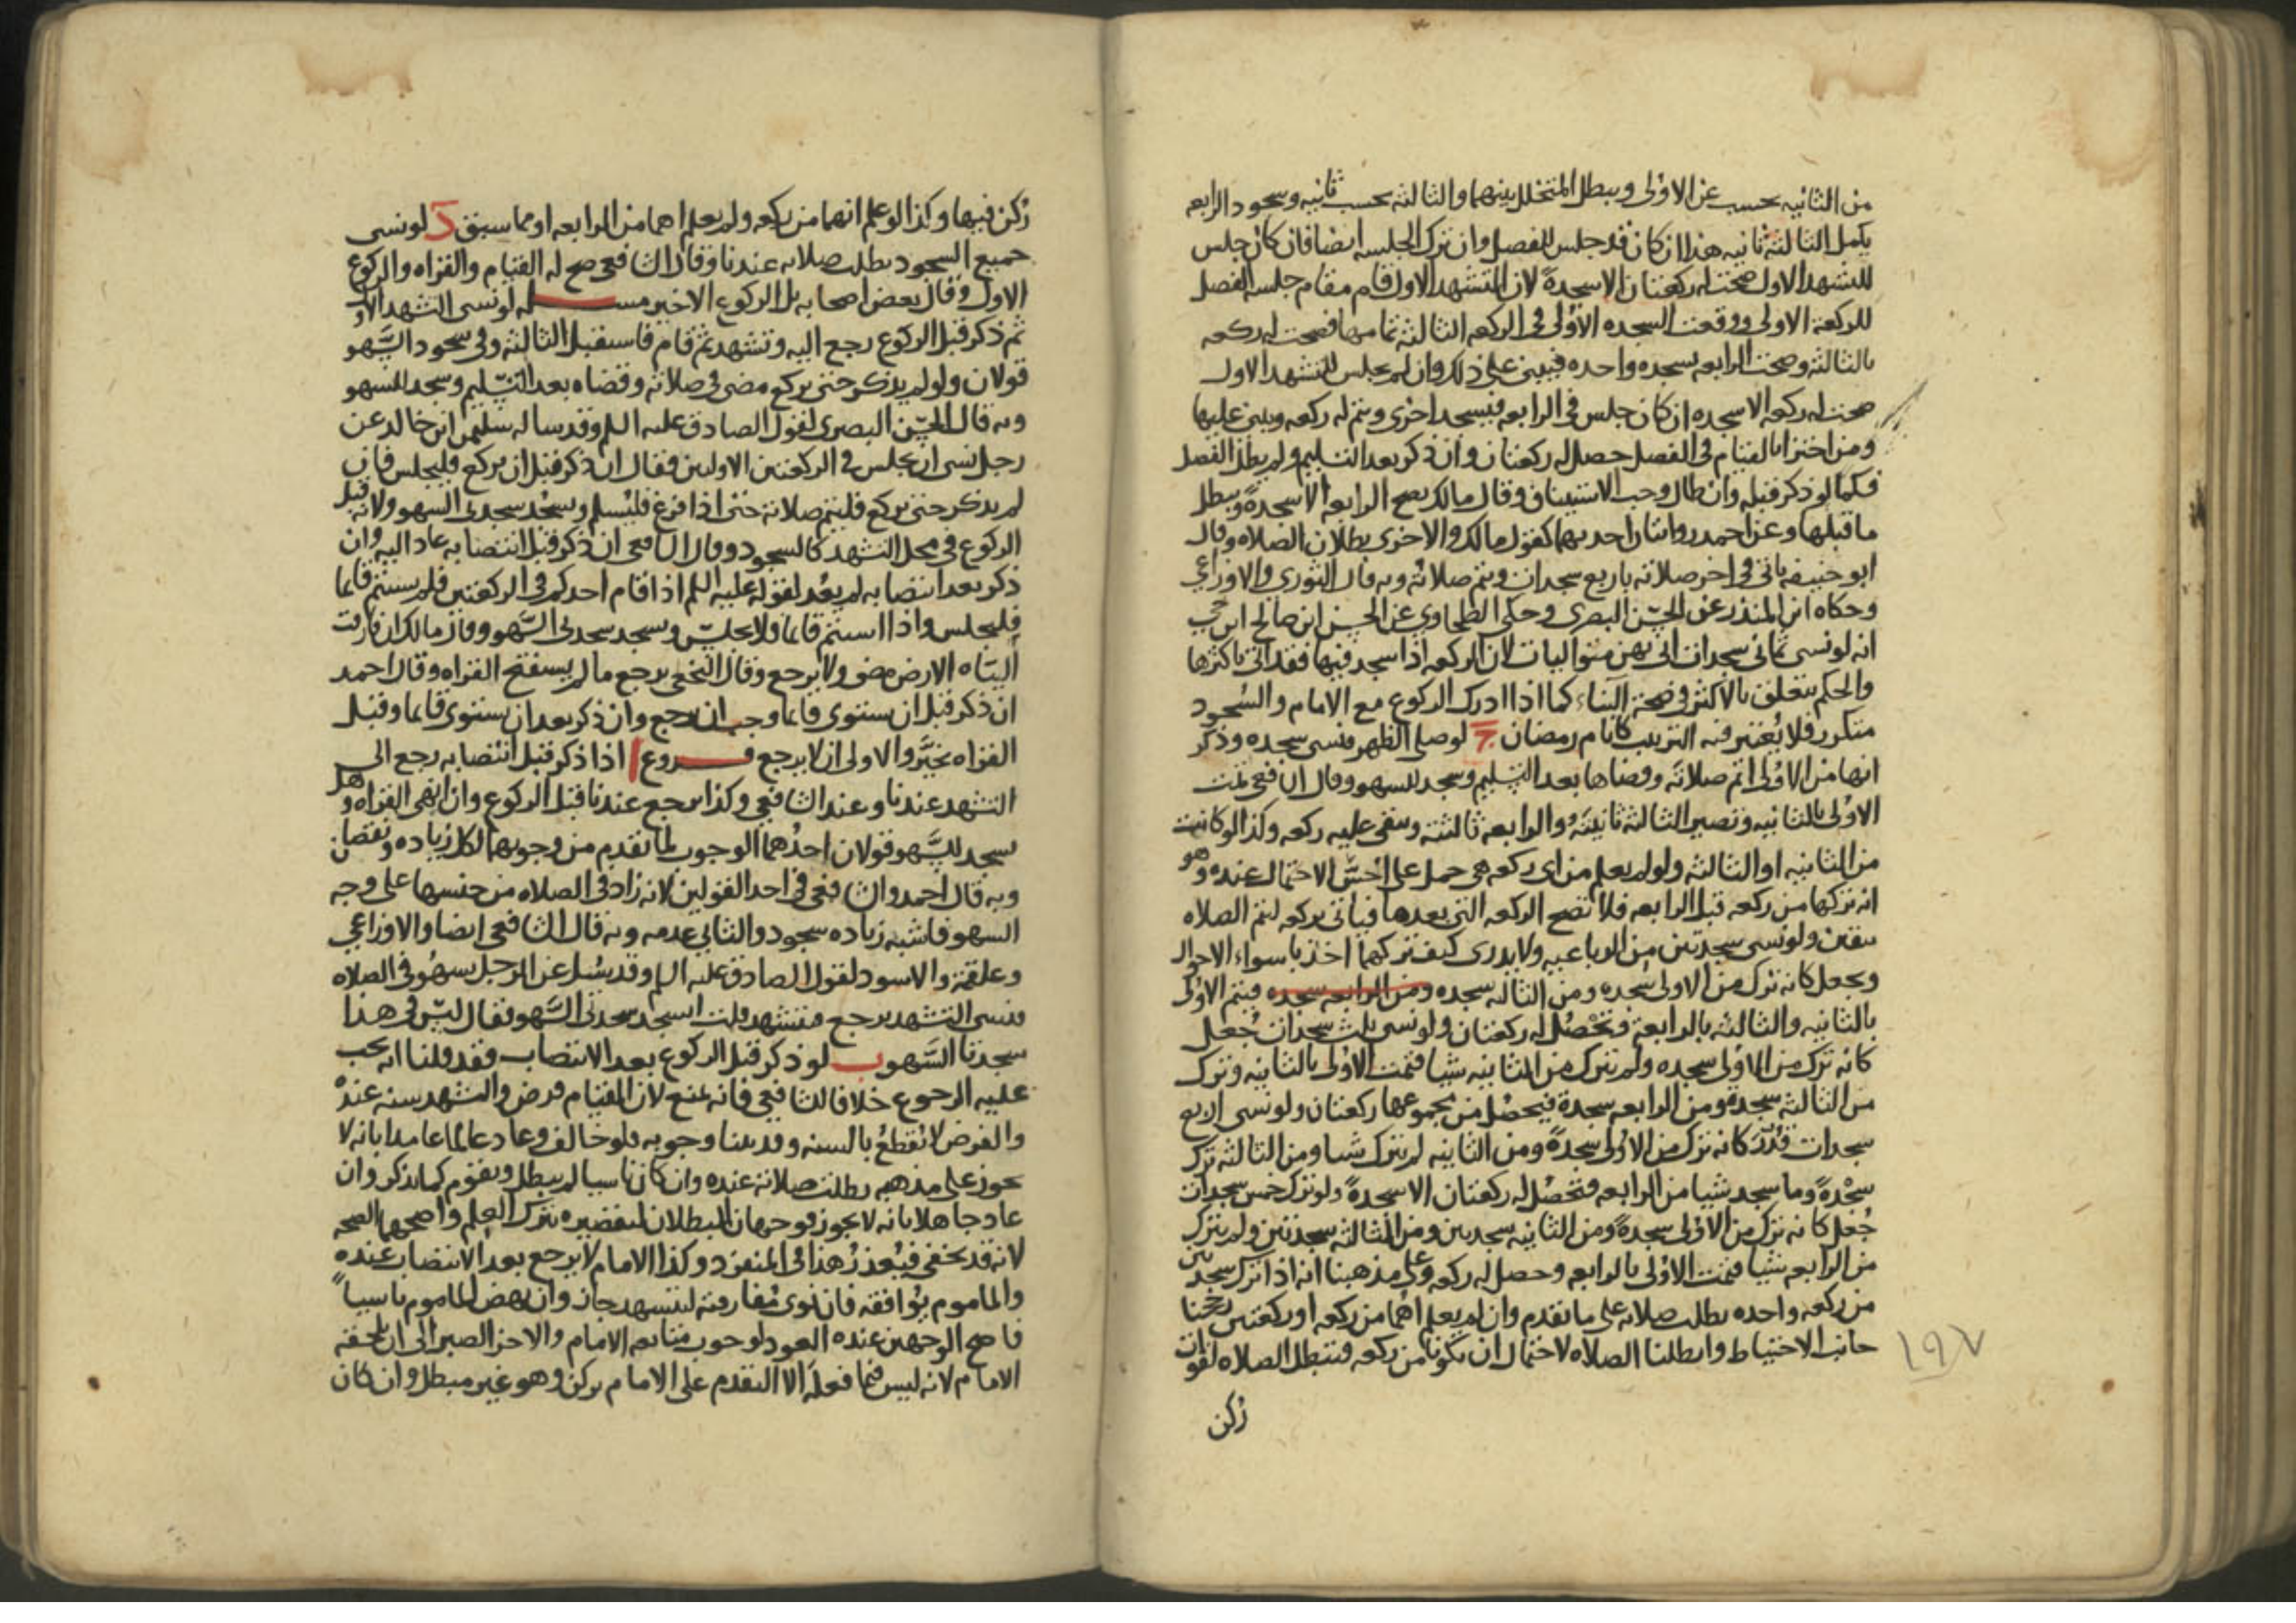 من الثانيه يحسب عن الاولى ويبطل المتخلل بينهما والثالثه يحسب ثانيه وسجود الرابعه
يكمل الثالثة ثانيه هذا ان كان قد جلس للفصل وان ترك الجلسه ايضا فان كان جلس
للتشهد الاول صحت له ركعتان الا سجدةً لان التشهد الاول قام مقام جلسه الفصل
للركعة الاولى ووقعت السجده الاولى في الركعه الثالثة تمامها فصحت له ركعه
بالثالثة وصحت الرابعه بسجده واحده فيبنى على ذلك وان لم يجلس للتشهد الاول
صحت له ركعه الا سجده ان كان جلس في الرابعه فيسجد اخرى ويتم له ركعه ويبنى عليها
ومن اجتزا بالقيام في الفصل حصل له ركعتان وان ذكر بعد التسليم ولم يطل الفصل
فكما لو ذكر قبله وان طال وجب الاستيناف وقال مالك يصح الرابعه الا سجدةً ويبطل
ما قبلها وعن احمد روايتان احديهما كقول مالك والاخرى بطلان الصلاه وقال
ابو حنيفه ياتي في اخر صلاته باربع سجدات ويتم صلاته وبه قال الثوري والاوزاعي
وحكاه ابن المنذر عن الحسن البصرى وحكى الطحاوي عن الحسن ابن صالح ابن حي
انه لو نسى ثماني سجدات اتى بهن متواليات لان الركعه اذا سجد فيها فقد اتى باكثرها
والحكم يتعلق بالاكثر في صحة البناء كما اذا ادرك الركوع مع الامام والسجود
متكرر فلا يعتبر فيه الترتيب كايام رمضان ج لو صلى الظهر فنسى سجده وذكر
انها من الاولى اتم صلاته وقضاها بعد التسليم وسجد للسهو وقال الشافعي تمت
الاولى بالثانيه وتصير الثالثة ثانيته والرابعه ثالثته ويبقى عليه ركعه وكذا لو كانت
من الثانيه او الثالثه ولو لم يعلم من اى ركعه هي حمل على اخس الاحتمال عنده وهو
انه تركها من ركعه قبل الرابعه فلا تصح الركعه التي بعدها فياتي بركعه ليتم الصلاه
بيقين ولو نسى سجدتين من الرباعيه ولا يدرى كيف تركهما اخذ باسواء الاحوال
ويجعل كانه ترك من الاولى سجده ومن الثالثه سجده ومن الرابعه سجده فيتم الاولى
بالثانيه والثالثه بالرابعة وتحصل له ركعتان ولو نسى ثلث سجدات جُعل
كانه ترك من الاولى سجده ولم يترك من الثانيه شيا فتمت الاولى بالثانيه وترك
من الثالثه سجدة ومن الرابعه سجدة فيحصل من مجموعها ركعتان ولو نسى اربع
سجدات قُدّر كانه ترك من الاولى سجدةً ومن الثانيه لم يترك شيا ومن الثالثه ترك
سجدةً وما سجد شيا من الرابعه فتحصل له ركعتان الا سجدةً ولو ترك خمس سجدات
جُعل كانه ترك من الاولى سجدةً ومن الثانيه سجدتين ومن الثالثه سجدتين ولم يترك
من الرابعه شيا فتمت الاولى بالرابعه وحصل له ركعه وعلى مذهبنا انه اذا ترك سجدتين
من ركعه واحده بطلت صلاته على ما تقدم وان لم يعلم اهما من ركعه او ركعتين رجحنا
جانب الاحتياط وابطلنا الصلاه لاحتمال ان تكونا من ركعه فتبطل الصلاه لفوات
ركن
١٩٧
ركن فيها وكذا لو علم انهما من ركعه ولم يعلم اهما من الرابعه او مما سبق د لو نسى
جميع السجود بطلت صلاته عندنا وقال الشافعي صح له القيام والقراه والركوع
الاول وقال بعض اصحابه بل الركوع الاخير مسله لو نسى التشهد الاول
ثم ذكر قبل الركوع رجع اليه وتشهد ثم قام فاستقبل الثالثه وفي سجود السَّهو
قولان ولو لم يذكر حتى يركع مضى في صلاته وقضاه بعد التسليم وسجد للسهو
وبه قال الحسن البصرى لقول الصادق عليه السلم وقد ساله سليمن ابن خالد عن
رجل نسى ان يجلس في الركعتين الاوليين فقال ان ذكر قبل ان يركع فليجلس فان
لم يذكر حتى يركع فليتم صلاته حتى اذا فرغ فليسلم وسجد سجدتى السهو ولانه قبل
الركوع في محل التشهد كالسجود وقال الشافعي ان ذكر قبل انتصابه عاد اليه وان
ذكر بعد انتصابه لم يعُد لقوله عليه السلم اذا قام احدكم في الركعتين فلم يستتم قايما
فليجلس واذا استتم قايما فلا يجلس ويسجد سجدتى السَّهو وقال مالك ان فارقت
الياه الارض مضى ولا يرجع وقال النخعي يرجع ما لم يستفتح القراه وقال احمد
ان ذكر قبل ان يستوى قايما وجب ان يرجع وان ذكر بعد ان يستوى قايما وقبل
القراه تخيَّر والاولى ان لا يرجع فروع ا اذا ذكر قبل انتصابه رجع الى
التشهد عندنا وعند الشافعي وكذا يرجع عندنا قبل الركوع وان انهى القراه وهل
يسجد للسَّهو قولان احدُهما الوجوب لما تقدم من وجوبهما لكل زياده ونقصان
وبه قال احمد والشافعي في احد القولين لانه زاد في الصلاه من جنسها على وجه
السهو فاشبه زياده سجود والثاني عدمه وبه قال الشافعي ايضا والاوزاعي
وعلقمة والاسود لقول الصادق عليه السلم وقد سُئل عن الرجل يسهُو في الصلاه
فنسى التشهد يرجع فيتشهد قلت ايسجد سجدتى السَّهو فقال ليس في هذا
سجدتا السَّهو ب لو ذكر قبل الركوع بعد الانتصاب فقد قلنا انه يجب
عليه الرجوع خلافا للشافعي فانه يمنع لان القيام فرض والتشهد سنه عنده
والفرض لا يُقطعُ بالسنه وقد بينا وجوبه فلو خالف وعاد عالما عامدا بانه لا
يجوز على مذهبه بطلت صلاته عنده وان كان ناسيا لم يبطل ويقوم كما يذكر وان
عاد جاهلا بانه لا يجوز فوجهان البطلان لتقصيره بترك العلم واصحهما الصحه
لانه قد يخفى فيُعذر هذا في المنفرد وكذا الامام لا يرجع بعد الانتصاب عنده
والماموم يُوافقه فان نوى مُفارقته ليتشهد جاز وان نهض الماموم ناسياً
فاصح الوجهين عنده العود لوجوب متابعه الامام والاخر الصبر الى ان يلحقه
الامام لانه ليس فيما فعله الا التقدم على الامام بركن وهو غير مبطل وان كان